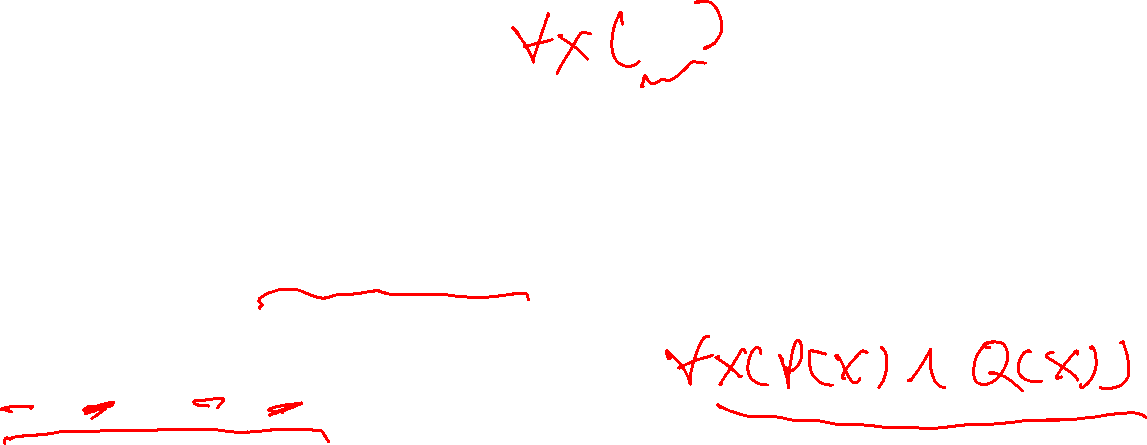 ∀x( )
∀x(P(x) ∧ Q(x))